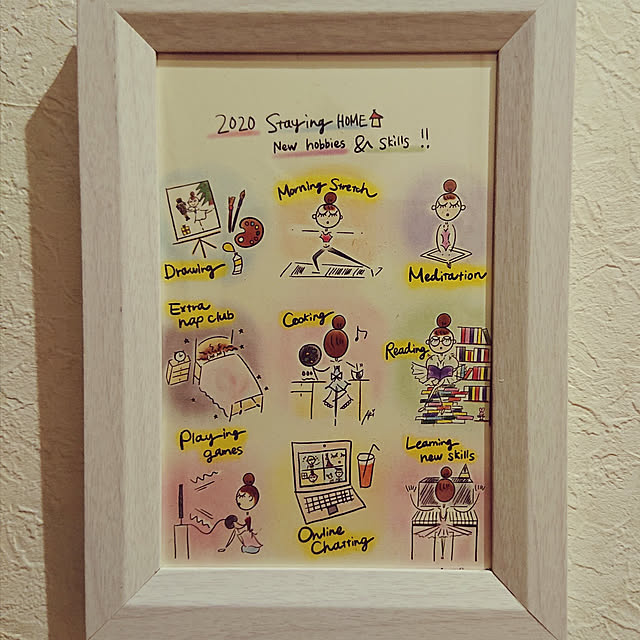 2020 Staying HOME
New hobbies & skills !!
Morning Stretch
Drawing
Meditation
Extra
nap club
Cooking
Reading
Playing
games
Online
Chatting
Learning
new skills